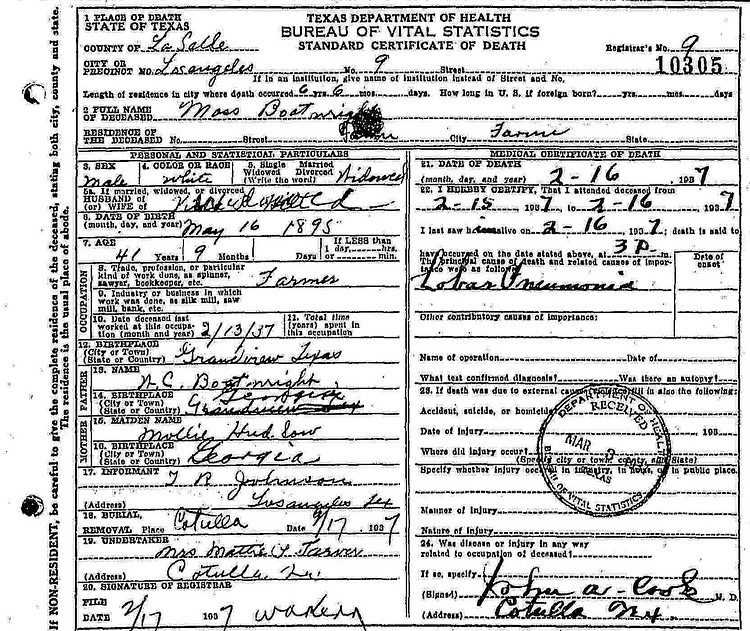 If NON-RESIDENT, be careful to give the complete residence of the deceased, stating both city, county and state.
The residence is the usual place of abode.
TEXAS DEPARTMENT OF HEALTH
BUREAU OF VITAL STATISTICS
STANDARD CERTIFICATE OF DEATH
1 PLACE OF DEATH
STATE OF TEXAS
COUNTY OF La Salle
Registrar's No. 9
10305
CITY OR
PRECINCT NO. Los angeles No. 9 Street
If in an institution, give name of institution instead of Street and No.
Length of residence in city where death occurred 6 yrs. 6 mos. days. How long in U. S. if foreign born? yrs. mos. days
2 FULL NAME
OF DECEASED Moss Boatwright
RESIDENCE OF
THE DECEASED No. Street City Farm State
PERSONAL AND STATISTICAL PARTICULARS
3. SEX male
4. COLOR OR RACE white
5. Single Married
Widowed Divorced
(Write the word) Widowed
5a. If married, widowed, or divorced
HUSBAND OF
(or) WIFE OF
6. DATE OF BIRTH
(month, day, and year) May 16 1895
7. AGE 41 Years 9 Months Days
If LESS than
1 day, hrs.
or min.
OCCUPATION
8. Trade, profession, or particular
kind of work done, as spinner,
sawyer, bookkeeper, etc. Farmer
9. Industry or business in which
work was done, as silk mill, saw
mill, bank, etc.
10. Date deceased last
worked at this occupa-
tion (month and year) 2/13/37
11. Total time
(years) spent in
this occupation
12. BIRTHPLACE
(City or Town)
(State or Country) Grandview Texas
FATHER
13. NAME
A.C. Boatwright
14. BIRTHPLACE Georgia
(City or Town)
(State or Country) Grandview Tex
MOTHER
15. MAIDEN NAME
Mollie Hudson
16. BIRTHPLACE
(City or Town)
(State or Country) Georgia
17. INFORMANT T R Johnson
(Address) Los angeles Tex
18. BURIAL,
REMOVAL Place Cotulla Date 2/17 1937
19. UNDERTAKER
Mrs Mattie Y Tarver
(Address) Cotulla, Tex.
20. SIGNATURE OF REGISTRAR
FILE
DATE 2/17 1937
MEDICAL CERTIFICATE OF DEATH
21. DATE OF DEATH
(month, day, and year) 2-16 1937
22. I HEREBY CERTIFY, That I attended deceased from
2-15 1937, to 2-16, 1937
I last saw him alive on 2-16 1937; death is said to
have occurred on the date stated above, at 3 P m.
The principal cause of death and related causes of impor-
tance were as follows:
Date of
onset
Lobar Pneumonia
Other contributory causes of importance:
Name of operation Date of
What test confirmed diagnosis? Was there an autopsy?
23. If death was due to external causes (violence) fill in also the following:
Accident, suicide, or homicide
Date of injury 193
Where did injury occur?
(Specify city or town, county, and State)
Specify whether injury occurred in industry, in home, or in public place.
Manner of injury
Nature of injury
DEPARTMENT OF HEALTH
RECEIVED
MAR
TEXAS
BUREAU OF VITAL STATISTICS
24. Was disease or injury in any way
related to occupation of deceased?
If so, specify
(Signed) John W. Cook M. D.
(Address) Cotulla Tex.